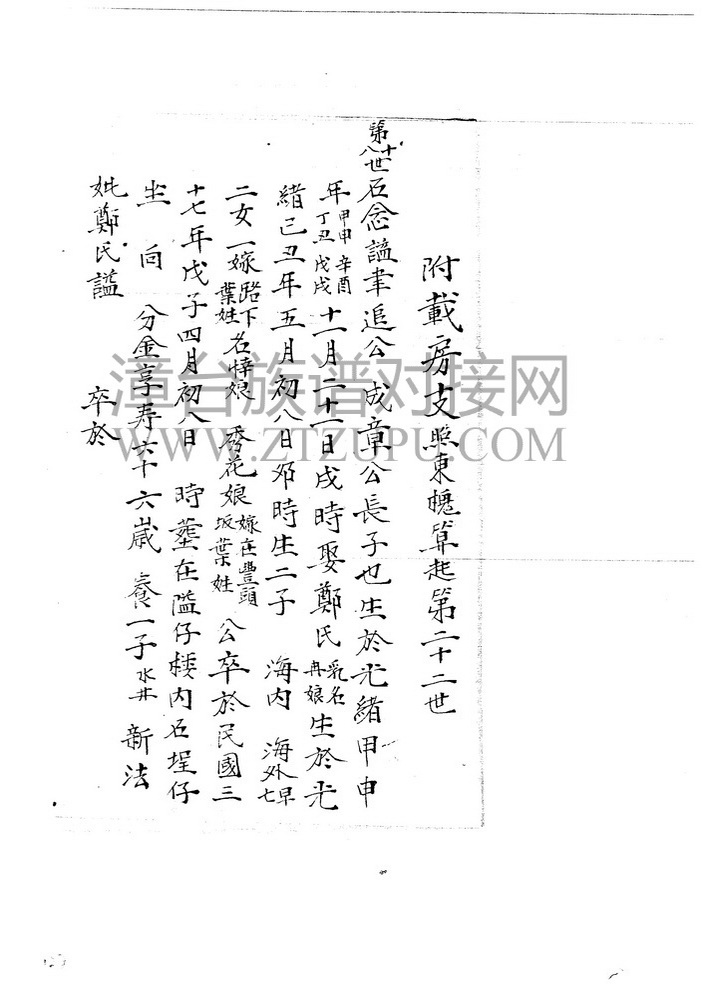 附載房支照東槐算起第二十二世
第十八世石念諡聿追公 成章公長子也生於光緒甲申
年甲申 辛酉 丁丑 戊戌 十一月二十一日戌時娶鄭氏 乳名冉娘 生於光
緒己丑年五月初八日夘時生二子 海内 海外早亡
二女一嫁路下葉姓 名悻娘 秀花娘 嫁在豐頭坂葉姓 公卒於民國三
十七年戊子四月初八日 時塟在隘仔楼内石埕仔
坐 向 分金享寿六十六歲 養一子水井 新法
妣鄭氏諡 卒於
漳台族谱对接网
WWW.ZTZUPU.COM